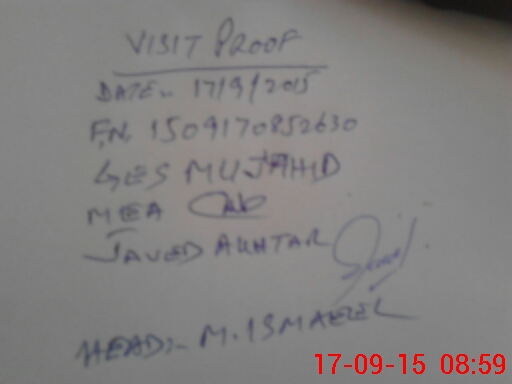 VISIT PROOF
DATE:- 17/9/2015
F.N. 1509170852630
GES MUJAHID
MEA
JAVED AKHTAR
HEAD:- M. ISMAEEL
17-09-15 08:59